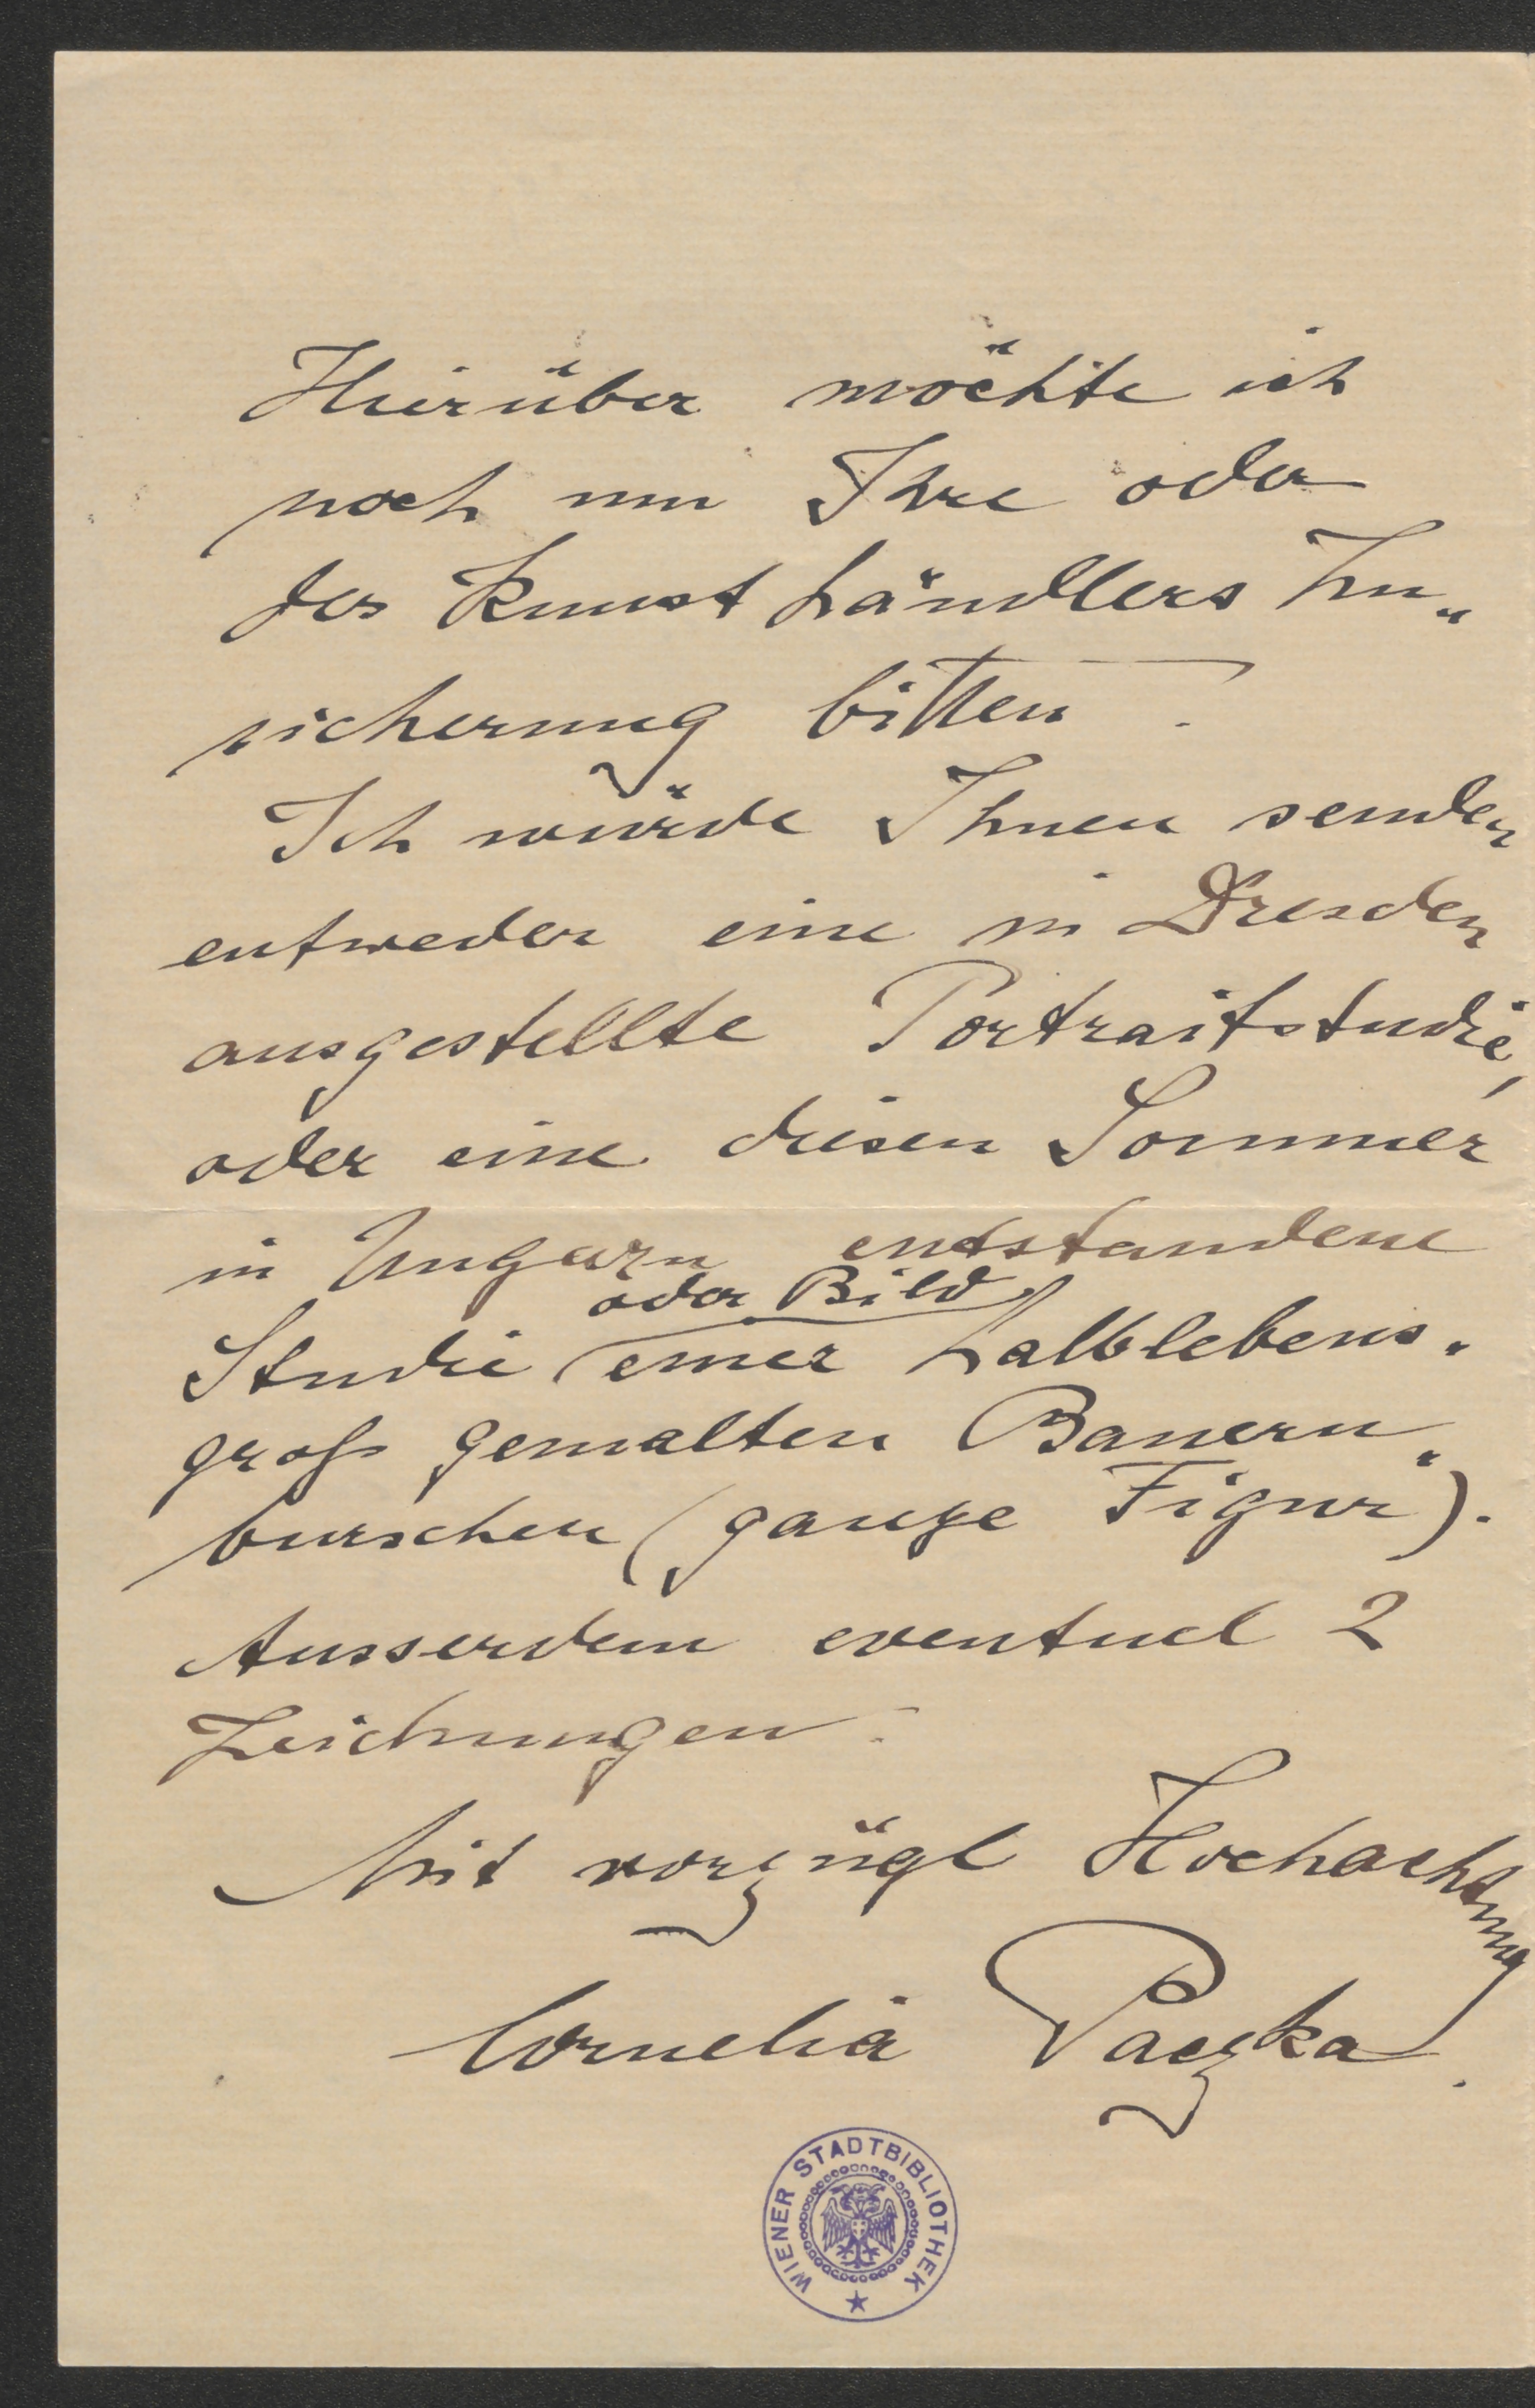 Hierüber möchte ich
noch um Ihre oder
des Kunsthändlers Zu„
sicherung bitten.
Ich würde Ihnen senden
entweder eine in Dresden
ausgestellte Portraitstudie,
oder eine diesen Sommer
in Ungarn entstandene
oder Bild
Studie einer halblebens„
groß gemalten Bauern„
burschen (ganze Figur).
Ausserdem eventuel 2
Zeichnungen.
Mit vorzügl Hochachtung
Cornelia Paczka.
WIENER STADTBIBLIOTHEK